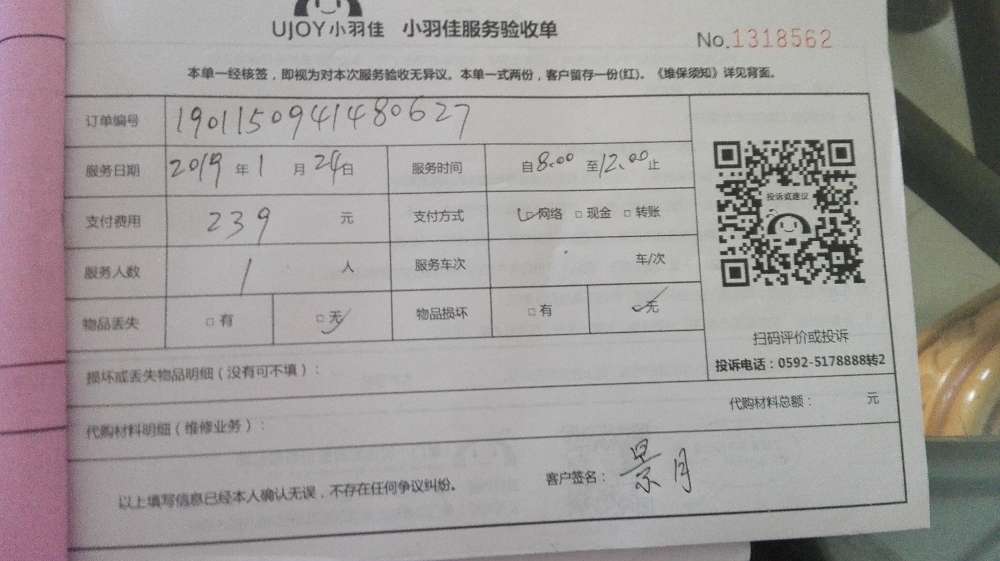 UJOY小羽佳 小羽佳服务验收单
No.1318562
本单一经核签，即视为对本次服务验收无异议。本单一式两份，客户留存一份(红)。《维保须知》详见背面。
订单编号 1901150941480627
服务日期 2019 年 1 月 24 日 服务时间 自 8.00 至 12.00 止
支付费用 239 元 支付方式 ☑网络 □现金 □转账
服务人数 1 人 服务车次 车/次
物品丢失 □有 □无✓ 物品损坏 □有 ✓无
投诉或建议
扫码评价或投诉
投诉电话：0592-5178888转2
损坏或丢失物品明细（没有可不填）：
代购材料明细（维修业务）： 代购材料总额： 元
以上填写信息已经本人确认无误，不存在任何争议纠纷。 客户签名：景月